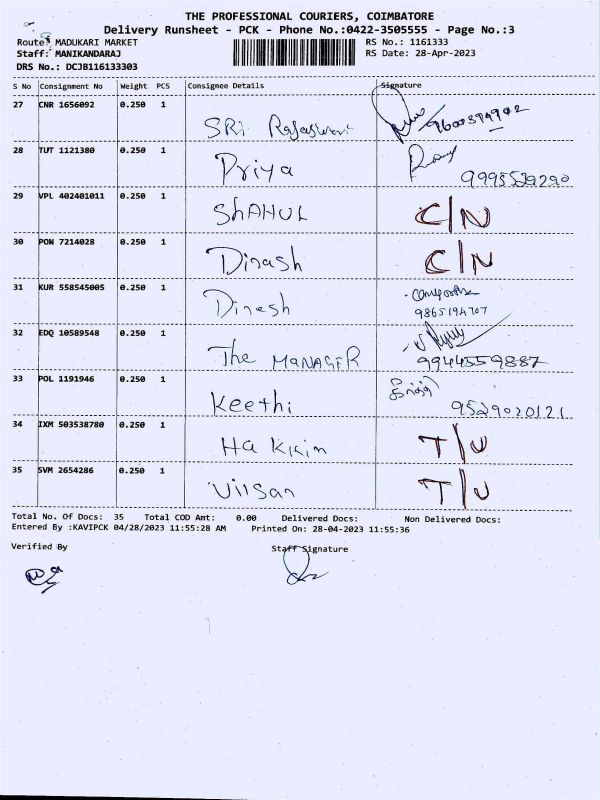 THE PROFESSIONAL COURIERS, COIMBATORE
Delivery Runsheet - PCK - Phone No.:0422-3505555 - Page No.:3
Route: MADUKARI MARKET RS No.: 1161333
Staff: MANIKANDARAJ RS Date: 28-Apr-2023
DRS No.: DCJB116133303
S No Consignment No Weight PCS Consignee Details Signature
27 CNR 1656092 0.250 1 SRi Rajaswari 9600394902
28 TUT 1121380 0.250 1 Priya 9995539290
29 VPL 402401011 0.250 1 SHAHUL C/N
30 PON 7214028 0.250 1 Dinash C/N
31 KUR 558545005 0.250 1 Dinesh
9865194707
32 EDQ 10589548 0.250 1 The MANAGER 9944559887
33 POL 1191946 0.250 1 Keethi 9529020121
34 IXM 503538780 0.250 1 Hakkim T/U
35 SVM 2654286 0.250 1 Vilsan T/U
Total No. Of Docs: 35 Total COD Amt: 0.00 Delivered Docs: Non Delivered Docs:
Entered By :KAVIPCK 04/28/2023 11:55:28 AM Printed On: 28-04-2023 11:55:36
Verified By Staff Signature